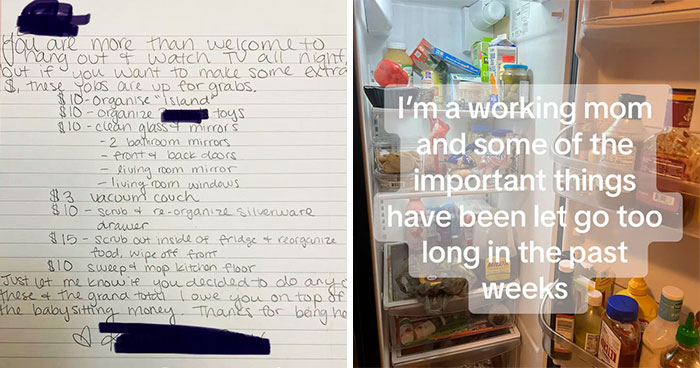 You are more than welcome to
hang out & watch TV all night,
but if you want to make some extra
$, these jobs are up for grabs.
$10 - organise "Island"
$10 - organize toys
$10 - clean glass & mirrors
- 2 bathroom mirrors
- front & back doors
- living room mirror
- living room windows
$3 vacuum couch
$10 - scrub & re-organize silverware
drawer
$15 - scrub out inside of fridge & reorganize
food, wipe off front
$10 sweep & mop kitchen floor
Just let me know if you decided to do any o
these & the grand total I owe you on top of
the babysitting money. Thanks for being he
I'm a working mom
and some of the
important things
have been let go too
long in the past
weeks